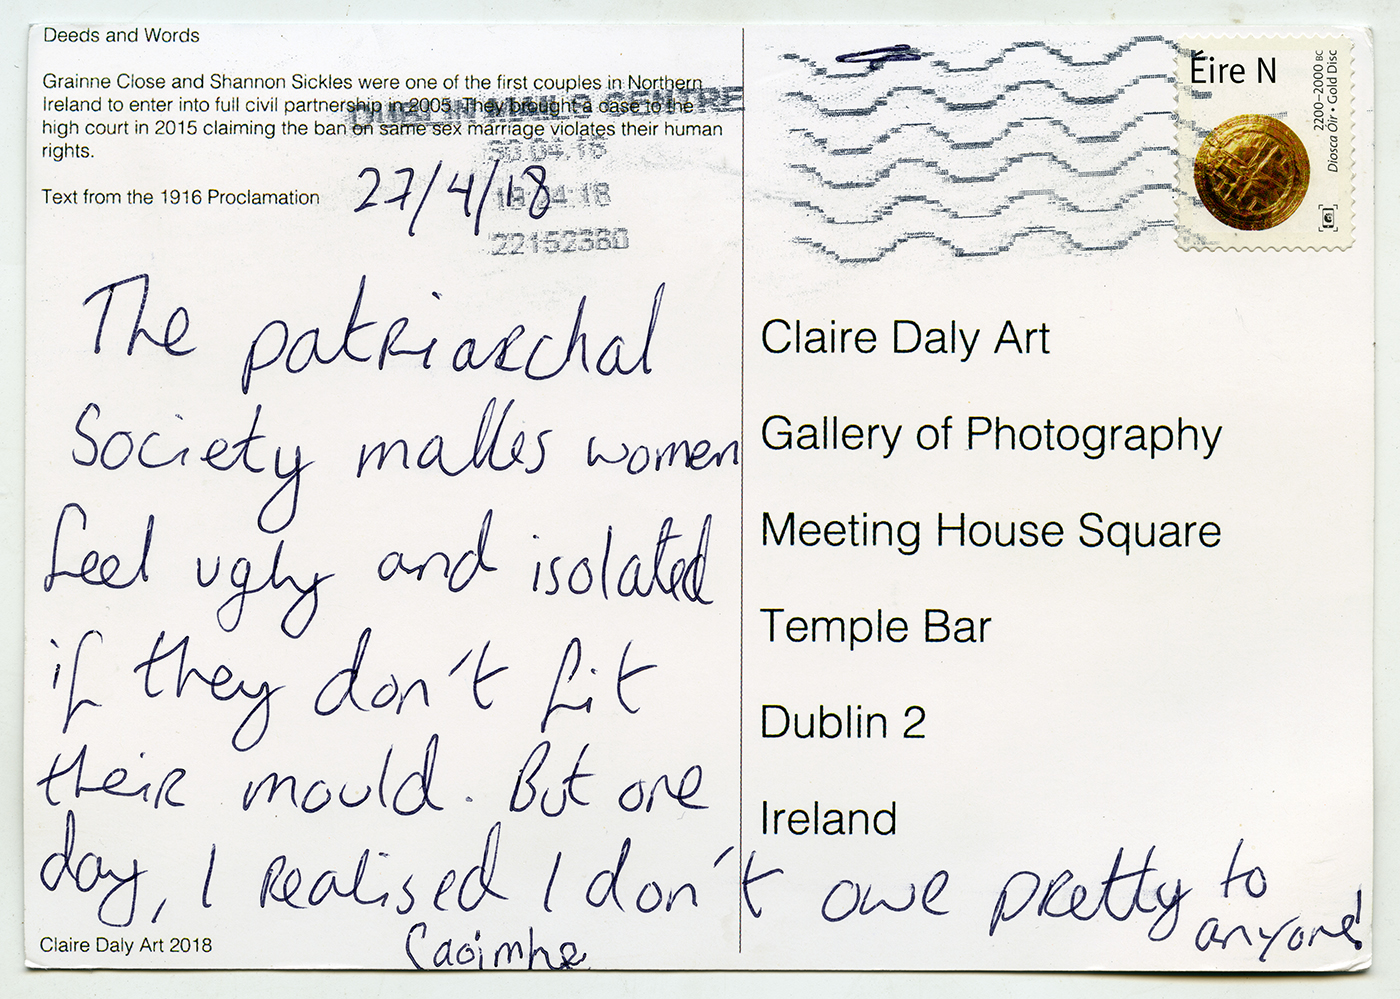 Deeds and Words
Grainne Close and Shannon Sickles were one of the first couples in Northern
Ireland to enter into full civil partnership in 2005. They brought a case to the
high court in 2015 claiming the ban on same sex marriage violates their human
rights.
Text from the 1916 Proclamation
27/4/18
22152380
The patriarchal
Society makes women
feel ugly and isolated
if they don't fit
their mould. But one
day, I realised I don't owe pretty to
anyone!
Caoimhe
Claire Daly Art 2018
Éire N
2200–2000 BC
Diosca Óir • Gold Disc
Claire Daly Art
Gallery of Photography
Meeting House Square
Temple Bar
Dublin 2
Ireland